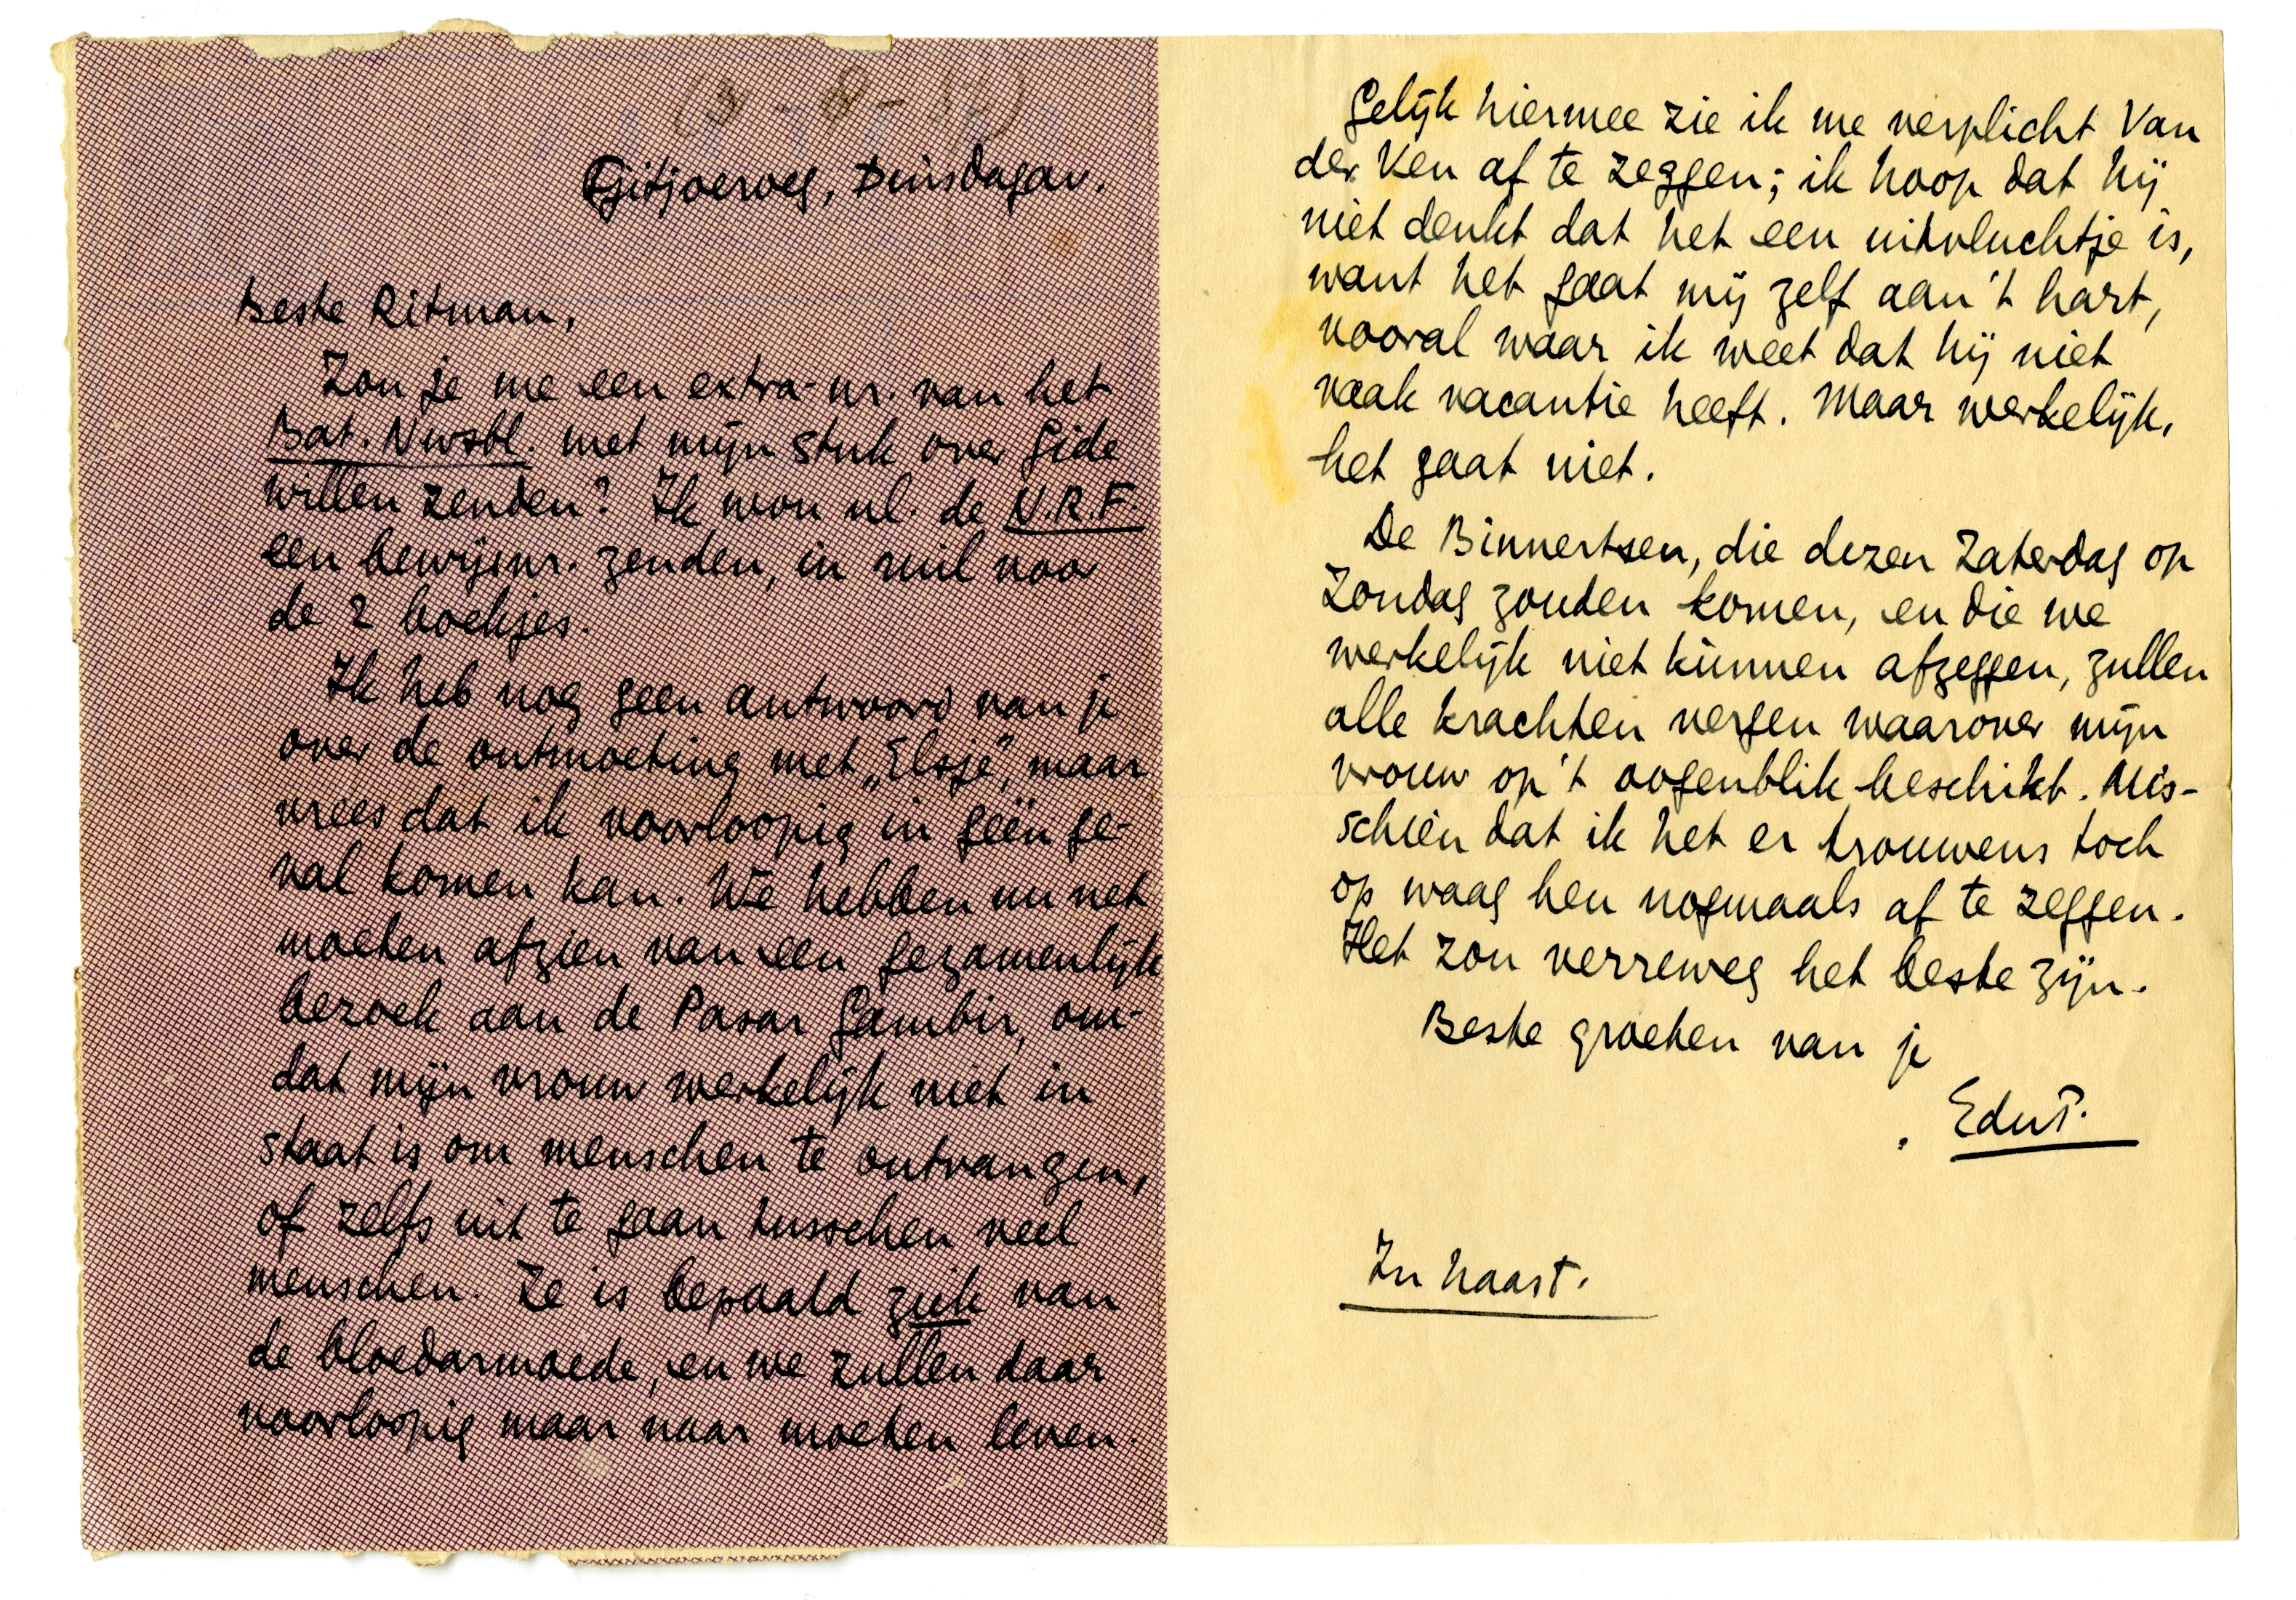 Tjitjoeroeg, Dinsdagav.
Beste Ritman,
Zou je me een extra-nr. van het
Bat. Nwsbl. met mijn stuk over Gide
willen zenden? Ik wou nl. de N.R.F.
een bewijsnr. zenden, in ruil voor
de 2 boekjes.
Ik heb nog geen antwoord van je
over de ontmoeting met „Elsje", maar
vrees dat ik voorloopig in géén ge-
val komen kan. We hebben nu net
moeten afzien van een gezamenlijk
bezoek aan de Pasar Gambir, om-
dat mijn vrouw werkelijk niet in
staat is om menschen te ontvangen,
of zelfs uit te gaan tusschen veel
menschen. Ze is bepaald ziek van
de bloedarmoede, en we zullen daar
voorloopig maar naar moeten leven.
Gelijk hiermee zie ik me verplicht Van
der Ven af te zeggen; ik hoop dat hij
niet denkt dat het een uitvluchtje is,
want het gaat mij zelf aan 't hart,
vooral waar ik weet dat hij niet
vaak vacantie heeft. Maar werkelijk,
het gaat niet.
De Binnertsen, die dezen Zaterdag op
Zondag zouden komen, en die we
werkelijk niet kùnnen afzeggen, zullen
alle krachten vergen waarover mijn
vrouw op 't oogenblik beschikt. Mis-
schien dat ik het er trouwens toch
op waag hen nogmaals af te zeggen.
Het zou verreweg het beste zijn.
Beste groeten van je
EduP.
In haast.